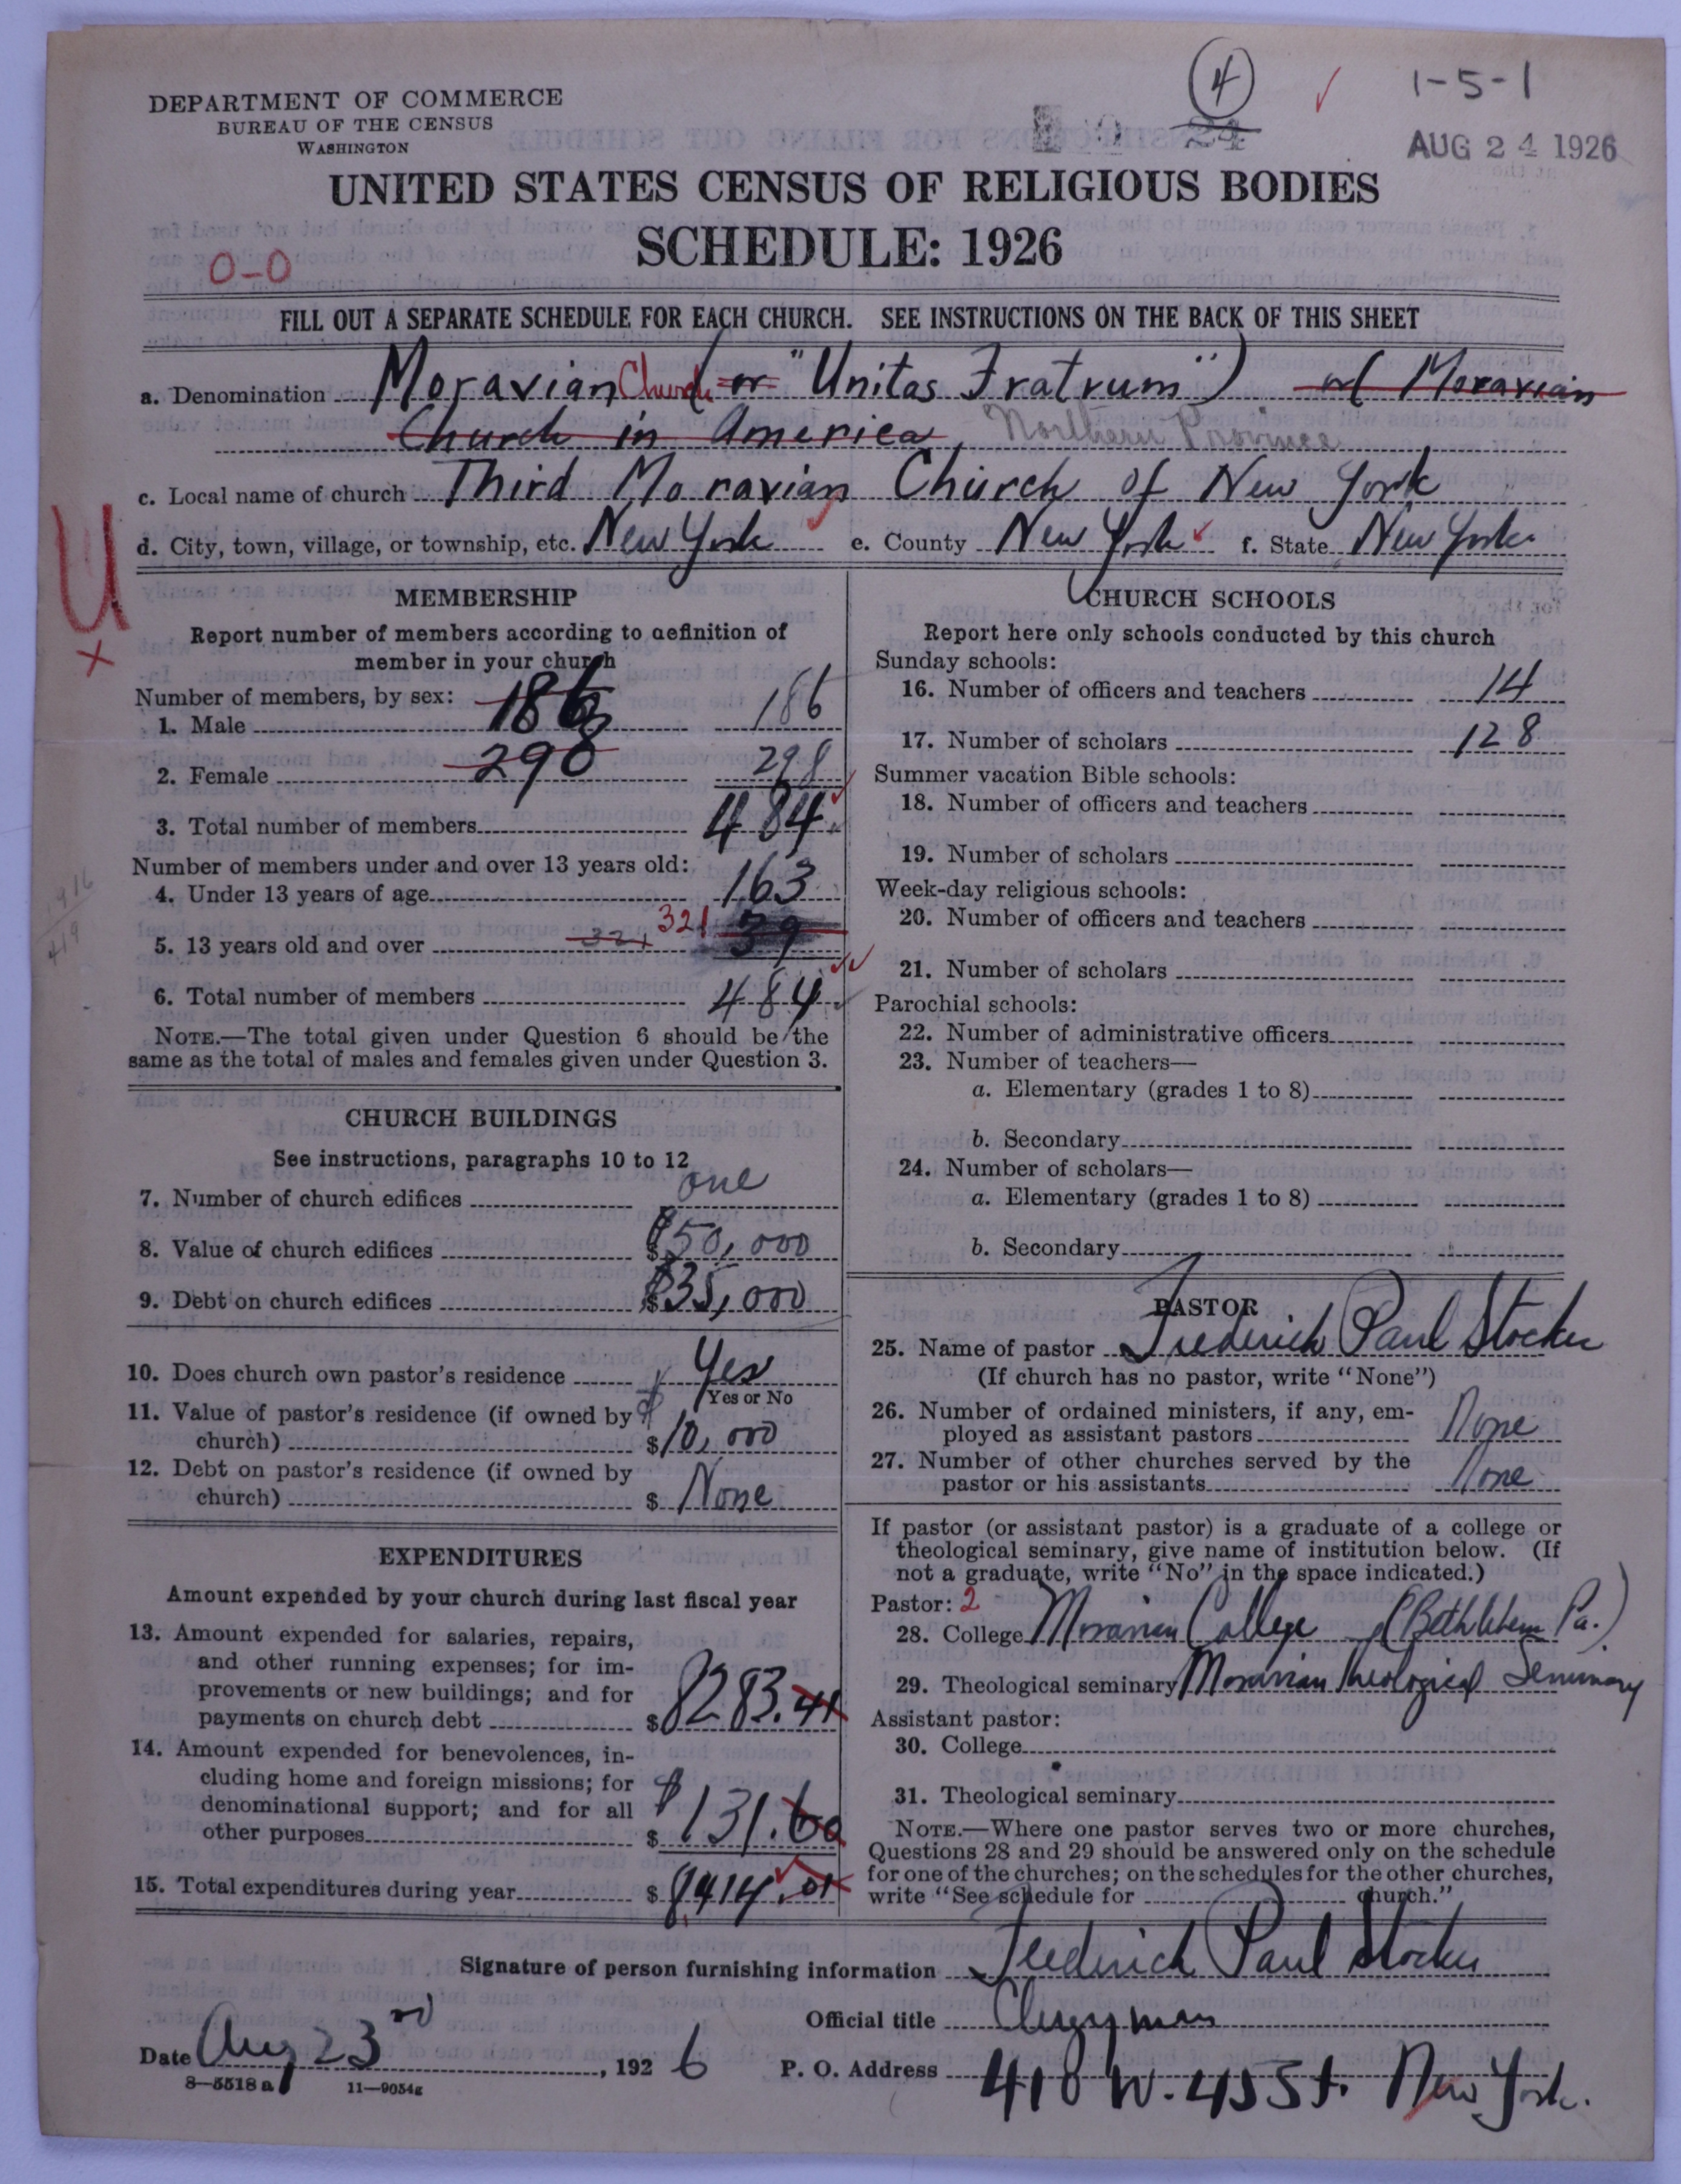 DEPARTMENT OF COMMERCE
BUREAU OF THE CENSUS
WASHINGTON
4
24
1-5-1
AUG 24 1926
UNITED STATES CENSUS OF RELIGIOUS BODIES
SCHEDULE: 1926
0-0
FILL OUT A SEPARATE SCHEDULE FOR EACH CHURCH. SEE INSTRUCTIONS ON THE BACK OF THIS SHEET
a. Denomination Moravian Church (or "Unitas Fratrum") or (Moravian
Church in America, Northern Province
c. Local name of church Third Moravian Church of New York
d. City, town, village, or township, etc. New York e. County New York f. State New York
U
x
MEMBERSHIP
Report number of members according to definition of
member in your church
Number of members, by sex:
1. Male 186 186
2. Female 298 298
3. Total number of members 484
Number of members under and over 13 years old:
4. Under 13 years of age 163
5. 13 years old and over 321 321 39
6. Total number of members 484
NOTE.—The total given under Question 6 should be the
same as the total of males and females given under Question 3.
1916
419
CHURCH BUILDINGS
See instructions, paragraphs 10 to 12
7. Number of church edifices one
8. Value of church edifices $50,000
9. Debt on church edifices $35,000
10. Does church own pastor's residence Yes
Yes or No
11. Value of pastor's residence (if owned by
church) $10,000
12. Debt on pastor's residence (if owned by
church) $ None
EXPENDITURES
Amount expended by your church during last fiscal year
13. Amount expended for salaries, repairs,
and other running expenses; for im-
provements or new buildings; and for
payments on church debt $8283.41
14. Amount expended for benevolences, in-
cluding home and foreign missions; for
denominational support; and for all
other purposes $131.60
15. Total expenditures during year $8414.01
CHURCH SCHOOLS
Report here only schools conducted by this church
Sunday schools:
16. Number of officers and teachers 14
17. Number of scholars 128
Summer vacation Bible schools:
18. Number of officers and teachers
19. Number of scholars
Week-day religious schools:
20. Number of officers and teachers
21. Number of scholars
Parochial schools:
22. Number of administrative officers
23. Number of teachers—
a. Elementary (grades 1 to 8)
b. Secondary
24. Number of scholars—
a. Elementary (grades 1 to 8)
b. Secondary
PASTOR
25. Name of pastor Frederick Paul Stocker
(If church has no pastor, write "None")
26. Number of ordained ministers, if any, em-
ployed as assistant pastors None
27. Number of other churches served by the
pastor or his assistants None
If pastor (or assistant pastor) is a graduate of a college or
theological seminary, give name of institution below. (If
not a graduate, write "No" in the space indicated.)
Pastor: 2
28. College Moravian College (Bethlehem Pa.)
29. Theological seminary Moravian Theological Seminary
Assistant pastor:
30. College
31. Theological seminary
NOTE.—Where one pastor serves two or more churches,
Questions 28 and 29 should be answered only on the schedule
for one of the churches; on the schedules for the other churches,
write "See schedule for church."
Signature of person furnishing information Frederick Paul Stocker
Official title Clergyman
Date Aug 23rd, 1926 P. O. Address 410 W. 45 St. New York.
8—5518 a 11—9054g